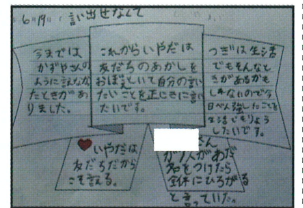 6月19日 言い出せなくて
今までは
かずやさんの
ようにさんな
たときがあ
りました。
これからいやだは
友だちのあかしを
おぼえといて自分の言い
たいことを正じきに言い
たいです。
つぎは生活
でもそんなと
きがあるかも
しれないので今日
べん強したことを
生活でもりよう
したいです。
いやだは
友だちだから
こそ言える。
さん
が1人があだ
名をつけたら
全体にひろがる
と言っていた。